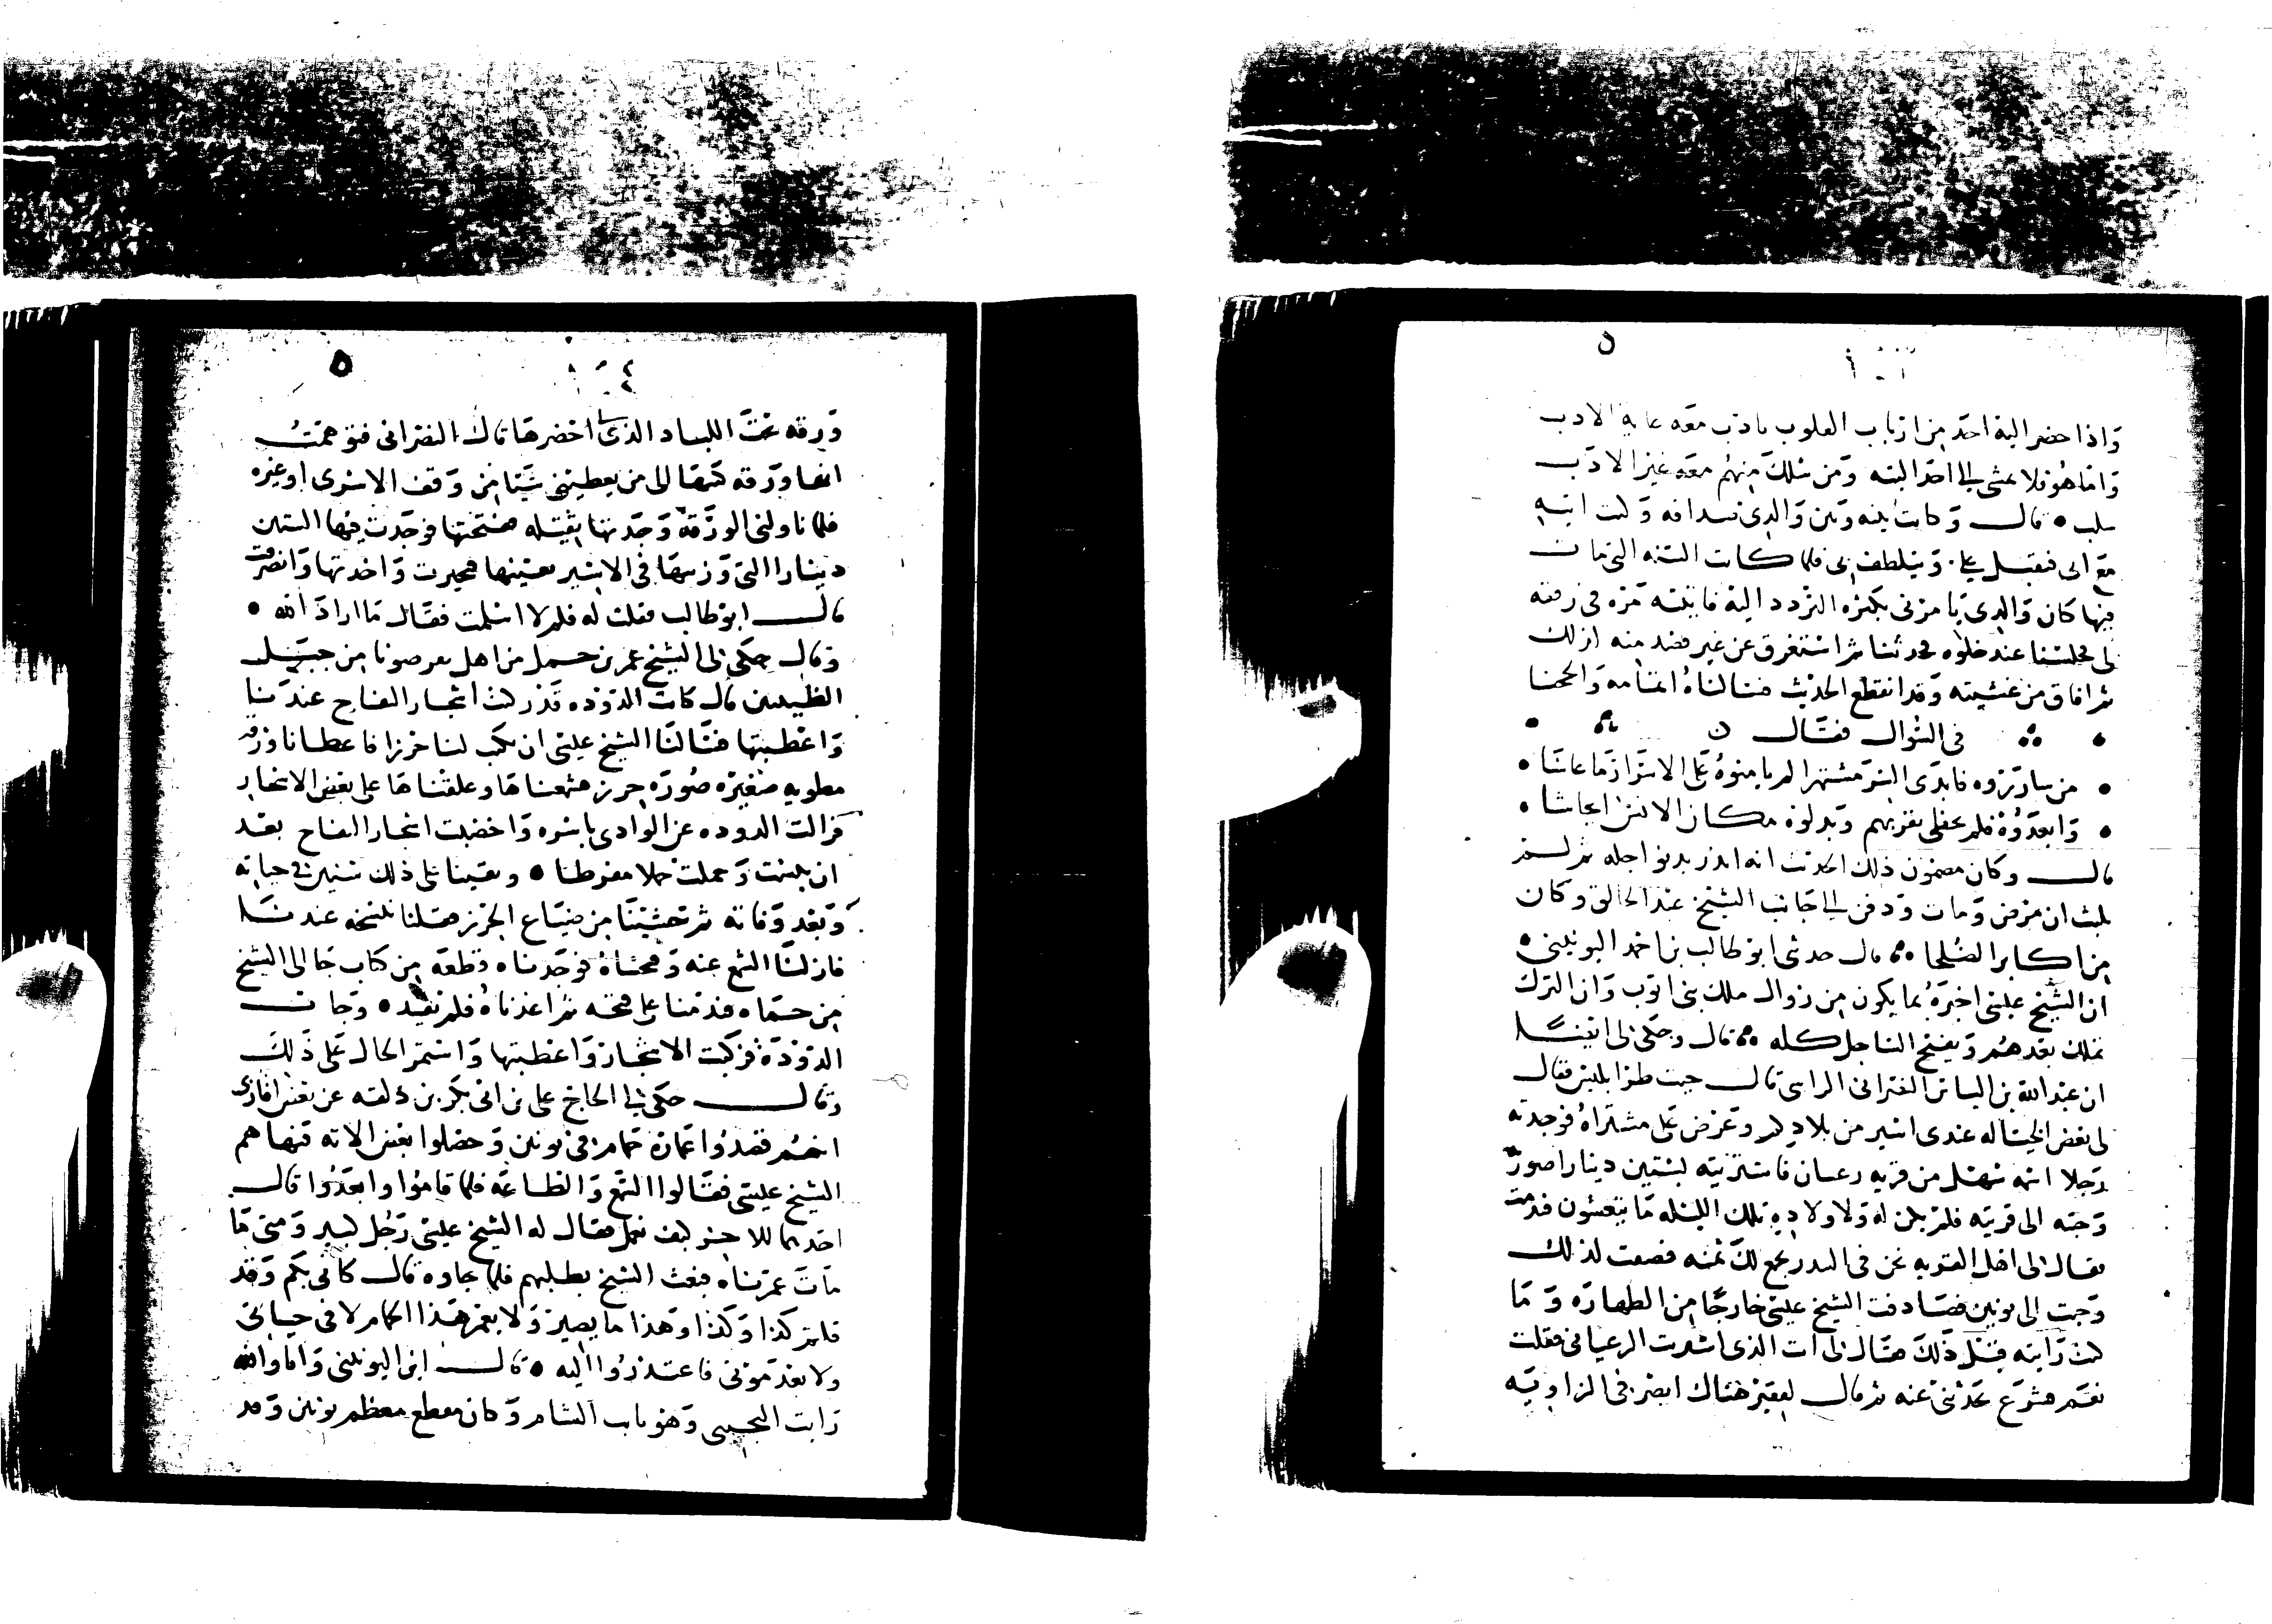 واذا حضر اليه احد من ارباب القلوب تادب معه غاية الادب
واما هو فلا يمشي الى احد البته ومن سلك منهم معه غير الادب
سلب قال وكانت بينه وبين والدي صداقه وكنت اتيه
مع ابي فيقبل علي ويتلطف بي فلما كانت السنه التي مات
فيها كان والدي يامرني بكثره التردد اليه فاتيته مره في رفقه
لي فجلسنا عند خلوه فحدثنا ثم استغرق عن غير قصد منه اذلك
ثم افاق من غشيته وقد انقطع الحديث فسالناه اتمامه والححنا
في السوال فقال
من سارروه فابدى السر مشتهرا لم يامنوه على الاسرار ما عاشا
وابعدوه فلم يحظى بقربهم وبدلوه مكان الانس ايحاشا
قال وكان مضمون ذلك الحديث انه انذر بدنو اجله ثم لم
يلبث ان مرض ومات ودفن الى جانب الشيخ عبد الخالق وكان
من اكابر الصلحا قال حدثني ابو طالب بن احمد اليونيني
ان الشيخ عيسى اخبره بما يكون من زوال ملك بني ايوب وان الترك
تملك بعدهم ويفتح الساحل كله قال وحكى لي ايضا
ان عبد الله بن الياس النصراني الراسي قال جيت طرابلس فقال
لي بعض الخياله عندي اسير من بلادكم وعرض علي مشتراه فوجدته
رجلا اسمه سهل من قريه رعبان فاشتريته بستين دينارا صوريه
وجيته الى قريته فلم يكن له ولا ولاده تلك الليله ما يتعشون فندمت
فقال لي اهل القريه نحن في البيدر نجمع لك ثمنه فضقت لذلك
وجيت الى يونين فصادفت الشيخ عيسى خارجا من الطهاره وما
كنت رايته قبل ذلك فقال لي انت الذي اشتريت الرعباني فقلت
نعم فشرع يحدثني عنه ثم قال لفقير هناك ابصر في الزاويه
ورقه تحت اللباد الذي احضرها قال النصراني فتوهمت
انها ورقه كتبها الى من يعطيني شيئا من وقف الاسرى او غيره
فلما ناولني الورقه وجدتها ثقيله ففتحتها فوجدت فيها الستين
دينارا التي وزنتها في الاسير بعينها فتحيرت واخذتها وانصرفت
قال ابو طالب فقلت له فلم لا اسلمت فقال ما اراد الله
وقال حكى لي الشيخ عمر بن حميل من اهل بعرصونا من جبل
الظنيين قال كانت الدوده قد ركبت اشجار التفاح عندنا
واعطبتها فسالنا الشيخ عيسى ان يكتب لنا حرزا فاعطانا ورقه
مطويه صغيره صوره حرز فشمعناها وعلقناها على بعض الاشجار
فزالت الدوده عن الوادي باسره واخصبت اشجار التفاح بعد
ان يبست وحملت حملا مفرطا وبقينا على ذلك سنين في حياته
وبعد وفاته ثم خشينا من ضياع الحرز فقلنا ننسخه عندنا
فازلنا الشمع عنه وفتحناه فوجدناه قطعه من كتاب جا الى الشيخ
من حماه فندمنا على فتحه ثم اعدناه فلم يفيد وجات
الدوده فركبت الاشجار واعطبتها واستمر الحال على ذلك
وقال حكى لي الحاج علي بن ابي بكر بن دلفه عن بعض اقاربه
انهم قصدوا عمارة حمام في يونين وحصلوا بعض الاته فنهاهم
الشيخ عيسى فقالوا السمع والطاعه فلما قاموا وابعدوا قال
احدهما للاخر كيف نعمل فقال له الشيخ عيسى رجل كبير ومتى ما
مات عمرناه فبعث الشيخ بطلبهم فلما جاوه قال كاني بكم وقد
قلتم كذا وكذا وهذا ما يصير ولا يعمر هذا الحمام لا في حياتي
ولا بعد موتي فاعتذروا اليه قال ابن اليونيني وانا والله
رايت النجيبي وهو نايب الشام وكان مقطع معظم يونين وقد